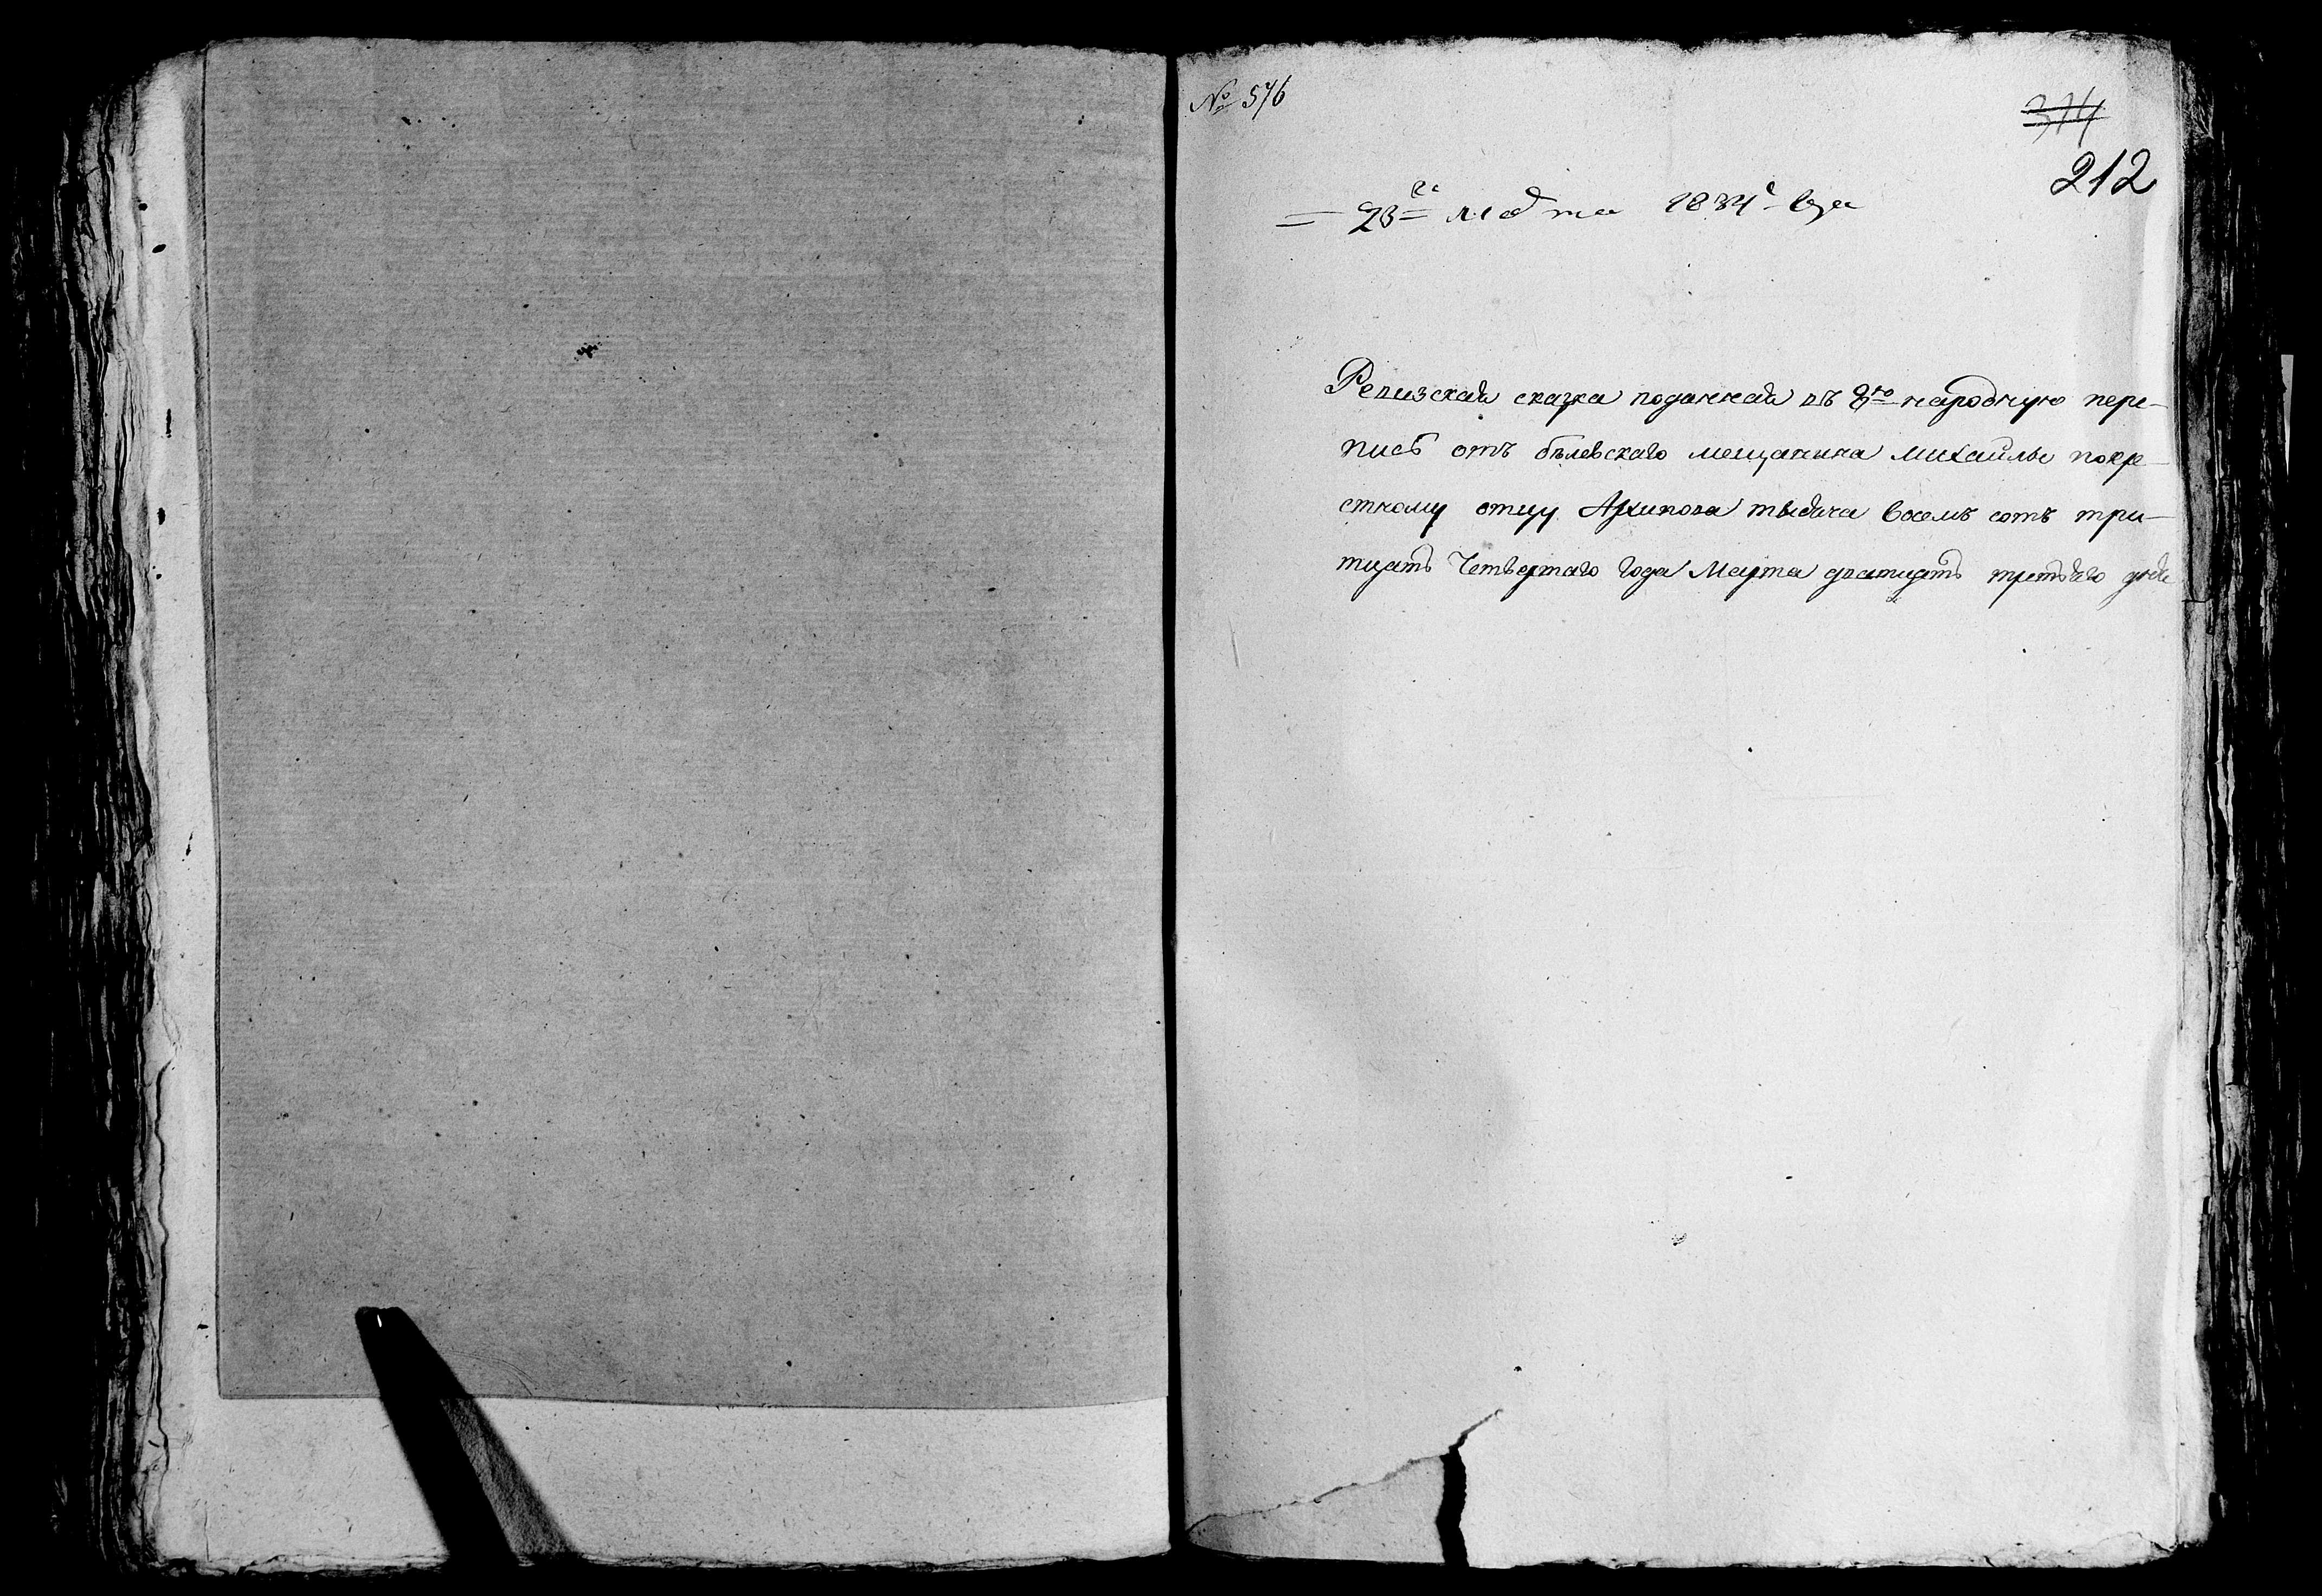 № 576
374
212
23го Марта 1834г года
Ревизская сказка поданная въ 8ю народную пере-
пись отъ бѣлевскаго мещанина михайлы покре-
стному отцу Архипова тысяча восемъ сотъ три-
тцать Четвертаго года Марта дватцать третьяго дня